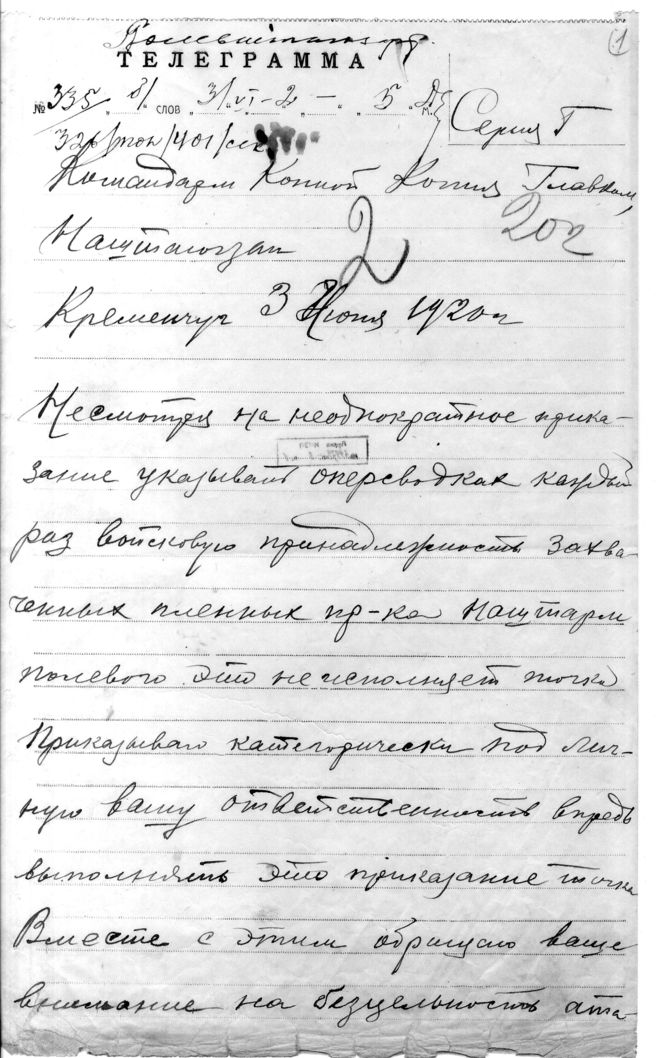 ТЕЛЕГРАММА
1
№ 335 слов 3/VI-2 - 5 м.
326/пол/401/сек
Серия Г
Командарм Конной Копия Главком,
Наштаюгзап
2
20г
Кременчуг 3 Июня 1920г
Несмотря на неоднократное прика-
зание указывать оперсводках каждый
раз войсковую принадлежность захва-
ченных пленных пр-ка Наштарм
полевого это не исполняет точка
Приказываю категорически под лич-
ную вашу ответственность впредь
выполнять это приказание точка
Вместе с этим обращаю ваше
внимание на безцельность ата-